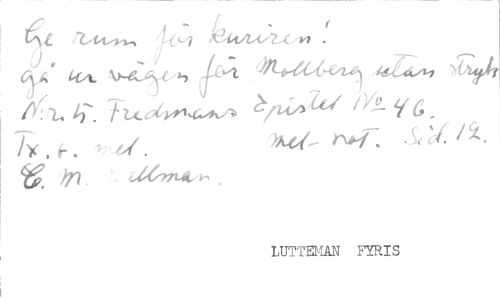 Ge rum för kuriren!
gå ur vägen för Mollberg utan stryk
N:r. 5. Fredmans Epistel No 46.
Tx. o. mel. mel- not. Sid. 12.
C. M. Bellman.
LUTTEMAN FYRIS